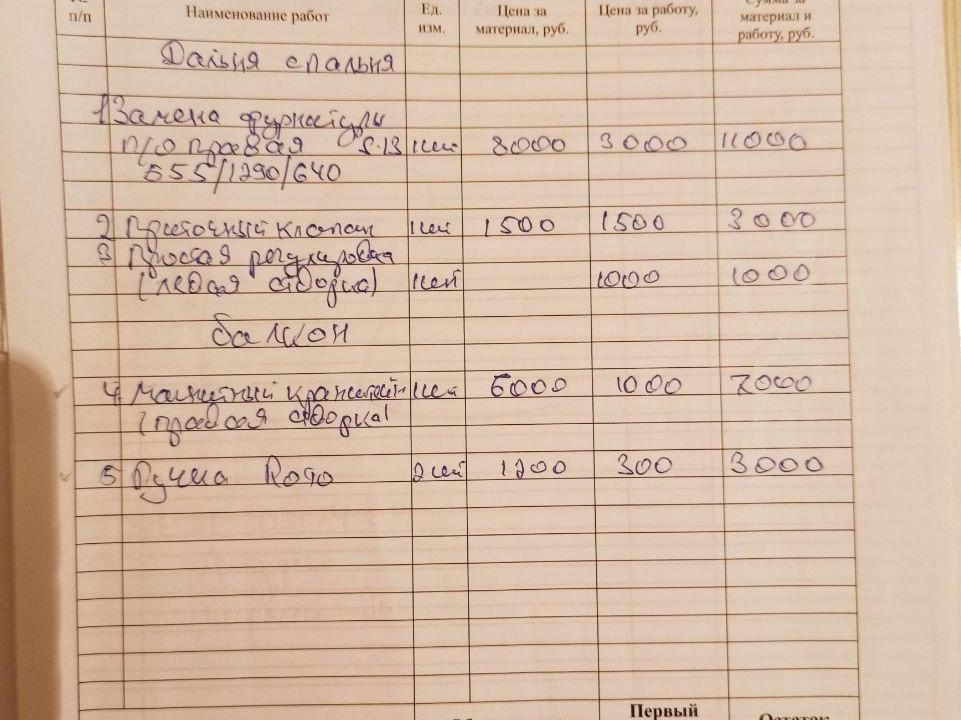 № п/п Наименование работ Ед. изм. Цена за материал, руб. Цена за работу, руб. Сумма за материал и работу, руб.
Дальня спальня
1 Замена фурнитуры
п/о правая 5.13 1шт 8000 3000 11000
555/1290/640
2 Приточный клапан 1шт 1500 1500 3000
3 Простая регулировка
(левая створка) 1шт 1000 1000
балкон
4 Магнитный кранштейн 1шт 6000 1000 7000
(правая створка)
5 Ручка Roto 2шт 1200 300 3000
Первый
Остаток